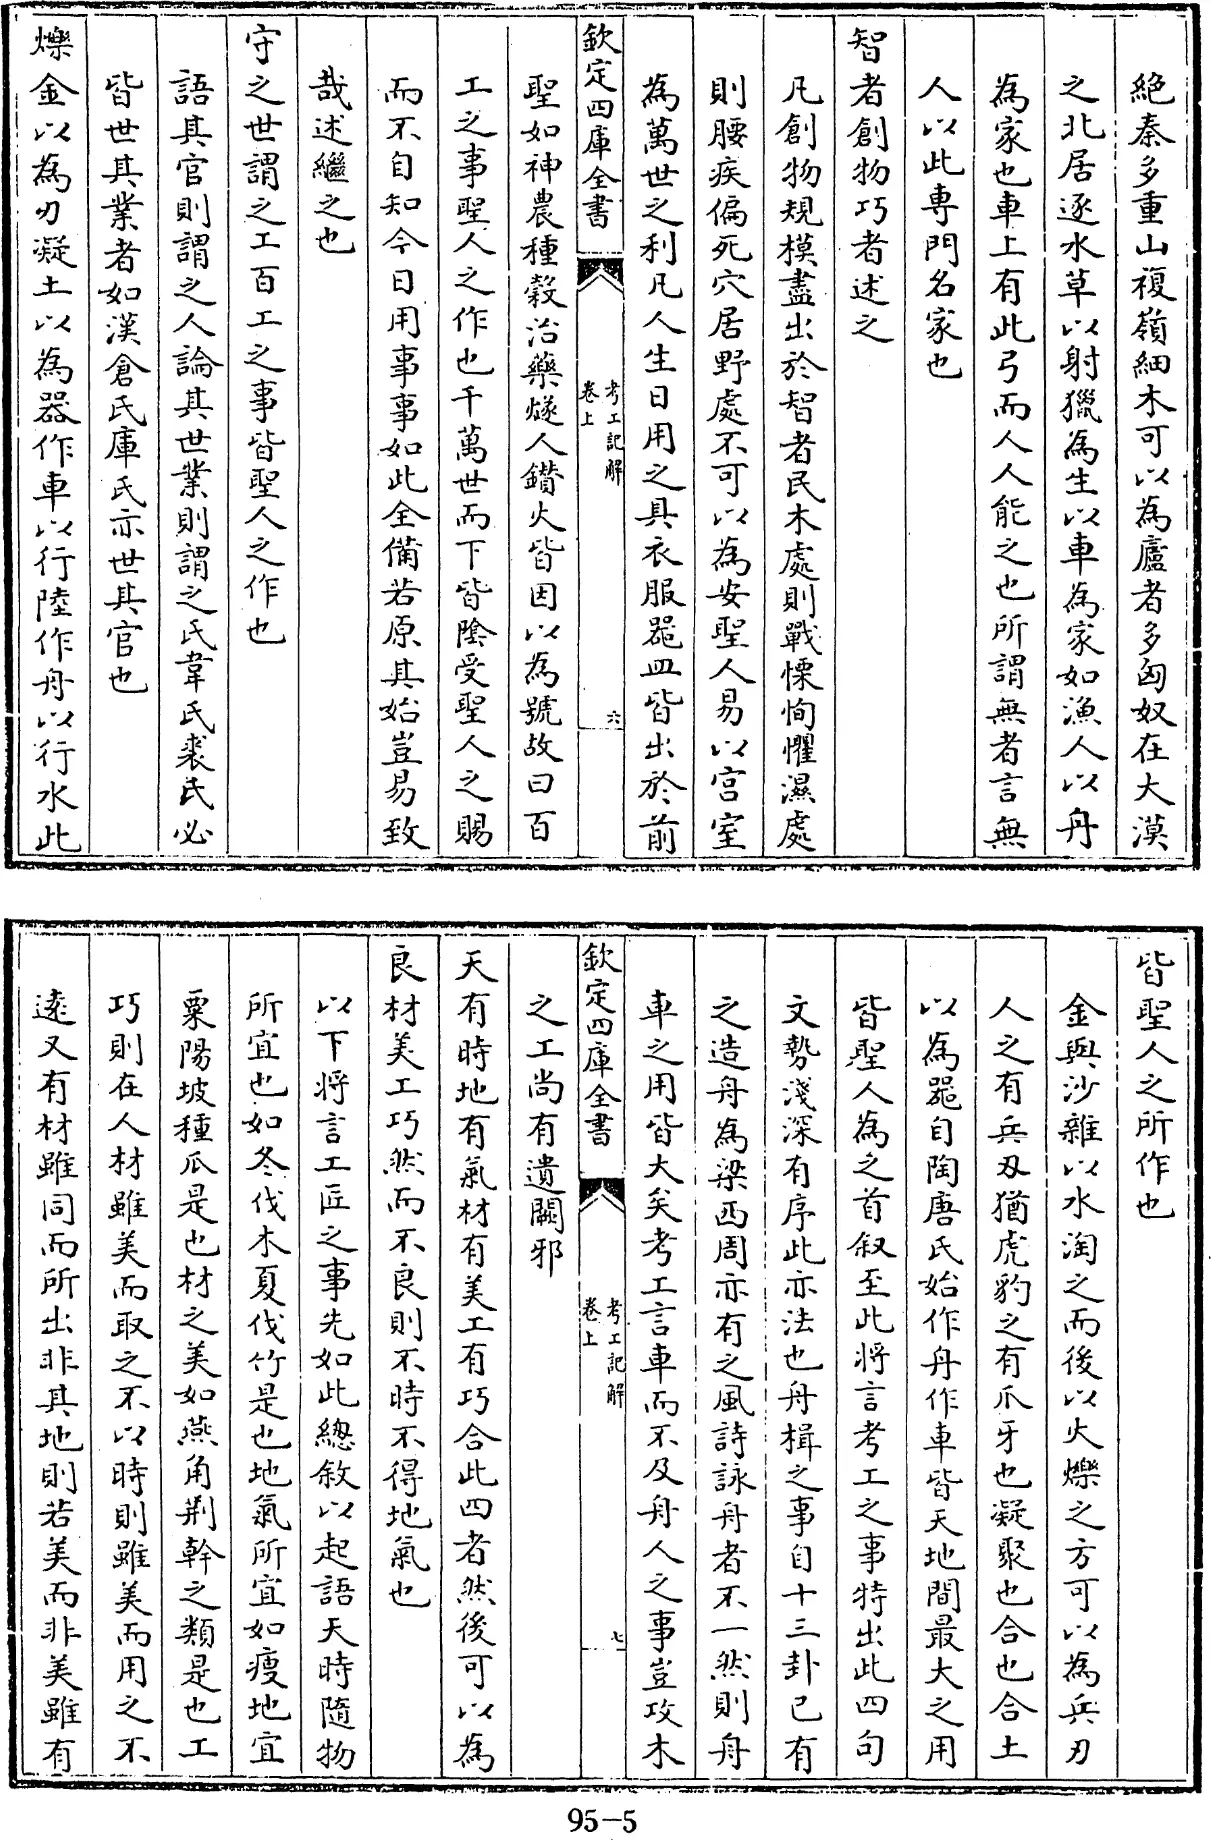 絶秦多重山複嶺細木可以為廬者多匈奴在大漠
之北居逐水草以射獵為生以車為家如漁人以舟
為家也車上有此弓而人人能之也所謂無者言無
人以此専門名家也
智者創物巧者述之
凡創物規模盡出於智者民木處則戰慄恂懼濕處
則腰疾偏死穴居野處不可以為安聖人易以宫室
為萬世之利凡人生日用之具衣服器皿皆出於前
欽定四庫全書
考工記解
卷上
六
聖如神農種穀治藥燧人鑚火皆因以為號故曰百
工之事聖人之作也千萬世而下皆隂受聖人之賜
而不自知今日用事事如此全備若原其始豈易致
哉述繼之也
守之世謂之工百工之事皆聖人之作也
語其官則謂之人論其世業則謂之氏韋氏裘氏必
皆世其業者如漢倉氏庫氏亦世其官也
爍金以為刃凝土以為器作車以行陸作舟以行水此
皆聖人之所作也
金與沙雜以水淘之而後以火爍之方可以為兵刃
人之有兵刄猶虎豹之有爪牙也凝聚也合也合土
以為器自陶唐氏始作舟作車皆天地間最大之用
皆聖人為之首叙至此將言考工之事特出此四句
文勢淺深有序此亦法也舟楫之事自十三卦已有
之造舟為梁西周亦有之風詩詠舟者不一然則舟
車之用皆大矣考工言車而不及舟人之事豈攻木
欽定四庫全書
考工記解
卷上
七
之工尚有遺闕邪
天有時地有氣材有美工有巧合此四者然後可以為
良材美工巧然而不良則不時不得地氣也
以下將言工匠之事先如此總敘以起語天時隨物
所宜也如冬伐木夏伐竹是也地氣所宜如瘦地宜
粟陽坡種瓜是也材之美如燕角荆幹之類是也工
巧則在人材雖美而取之不以時則雖美而用之不
逺又有材雖同而所出非其地則若美而非美雖有
95-5